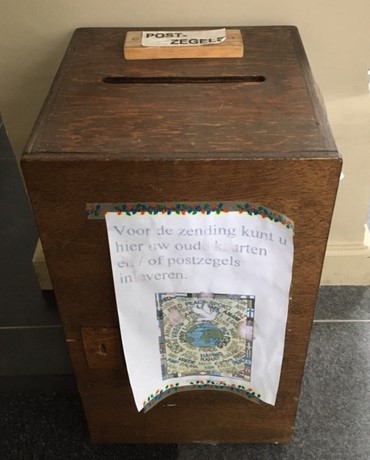 POST-
ZEGELS
Voor de zending kunt u
hier uw oude kaarten
en / of postzegels
inleveren.